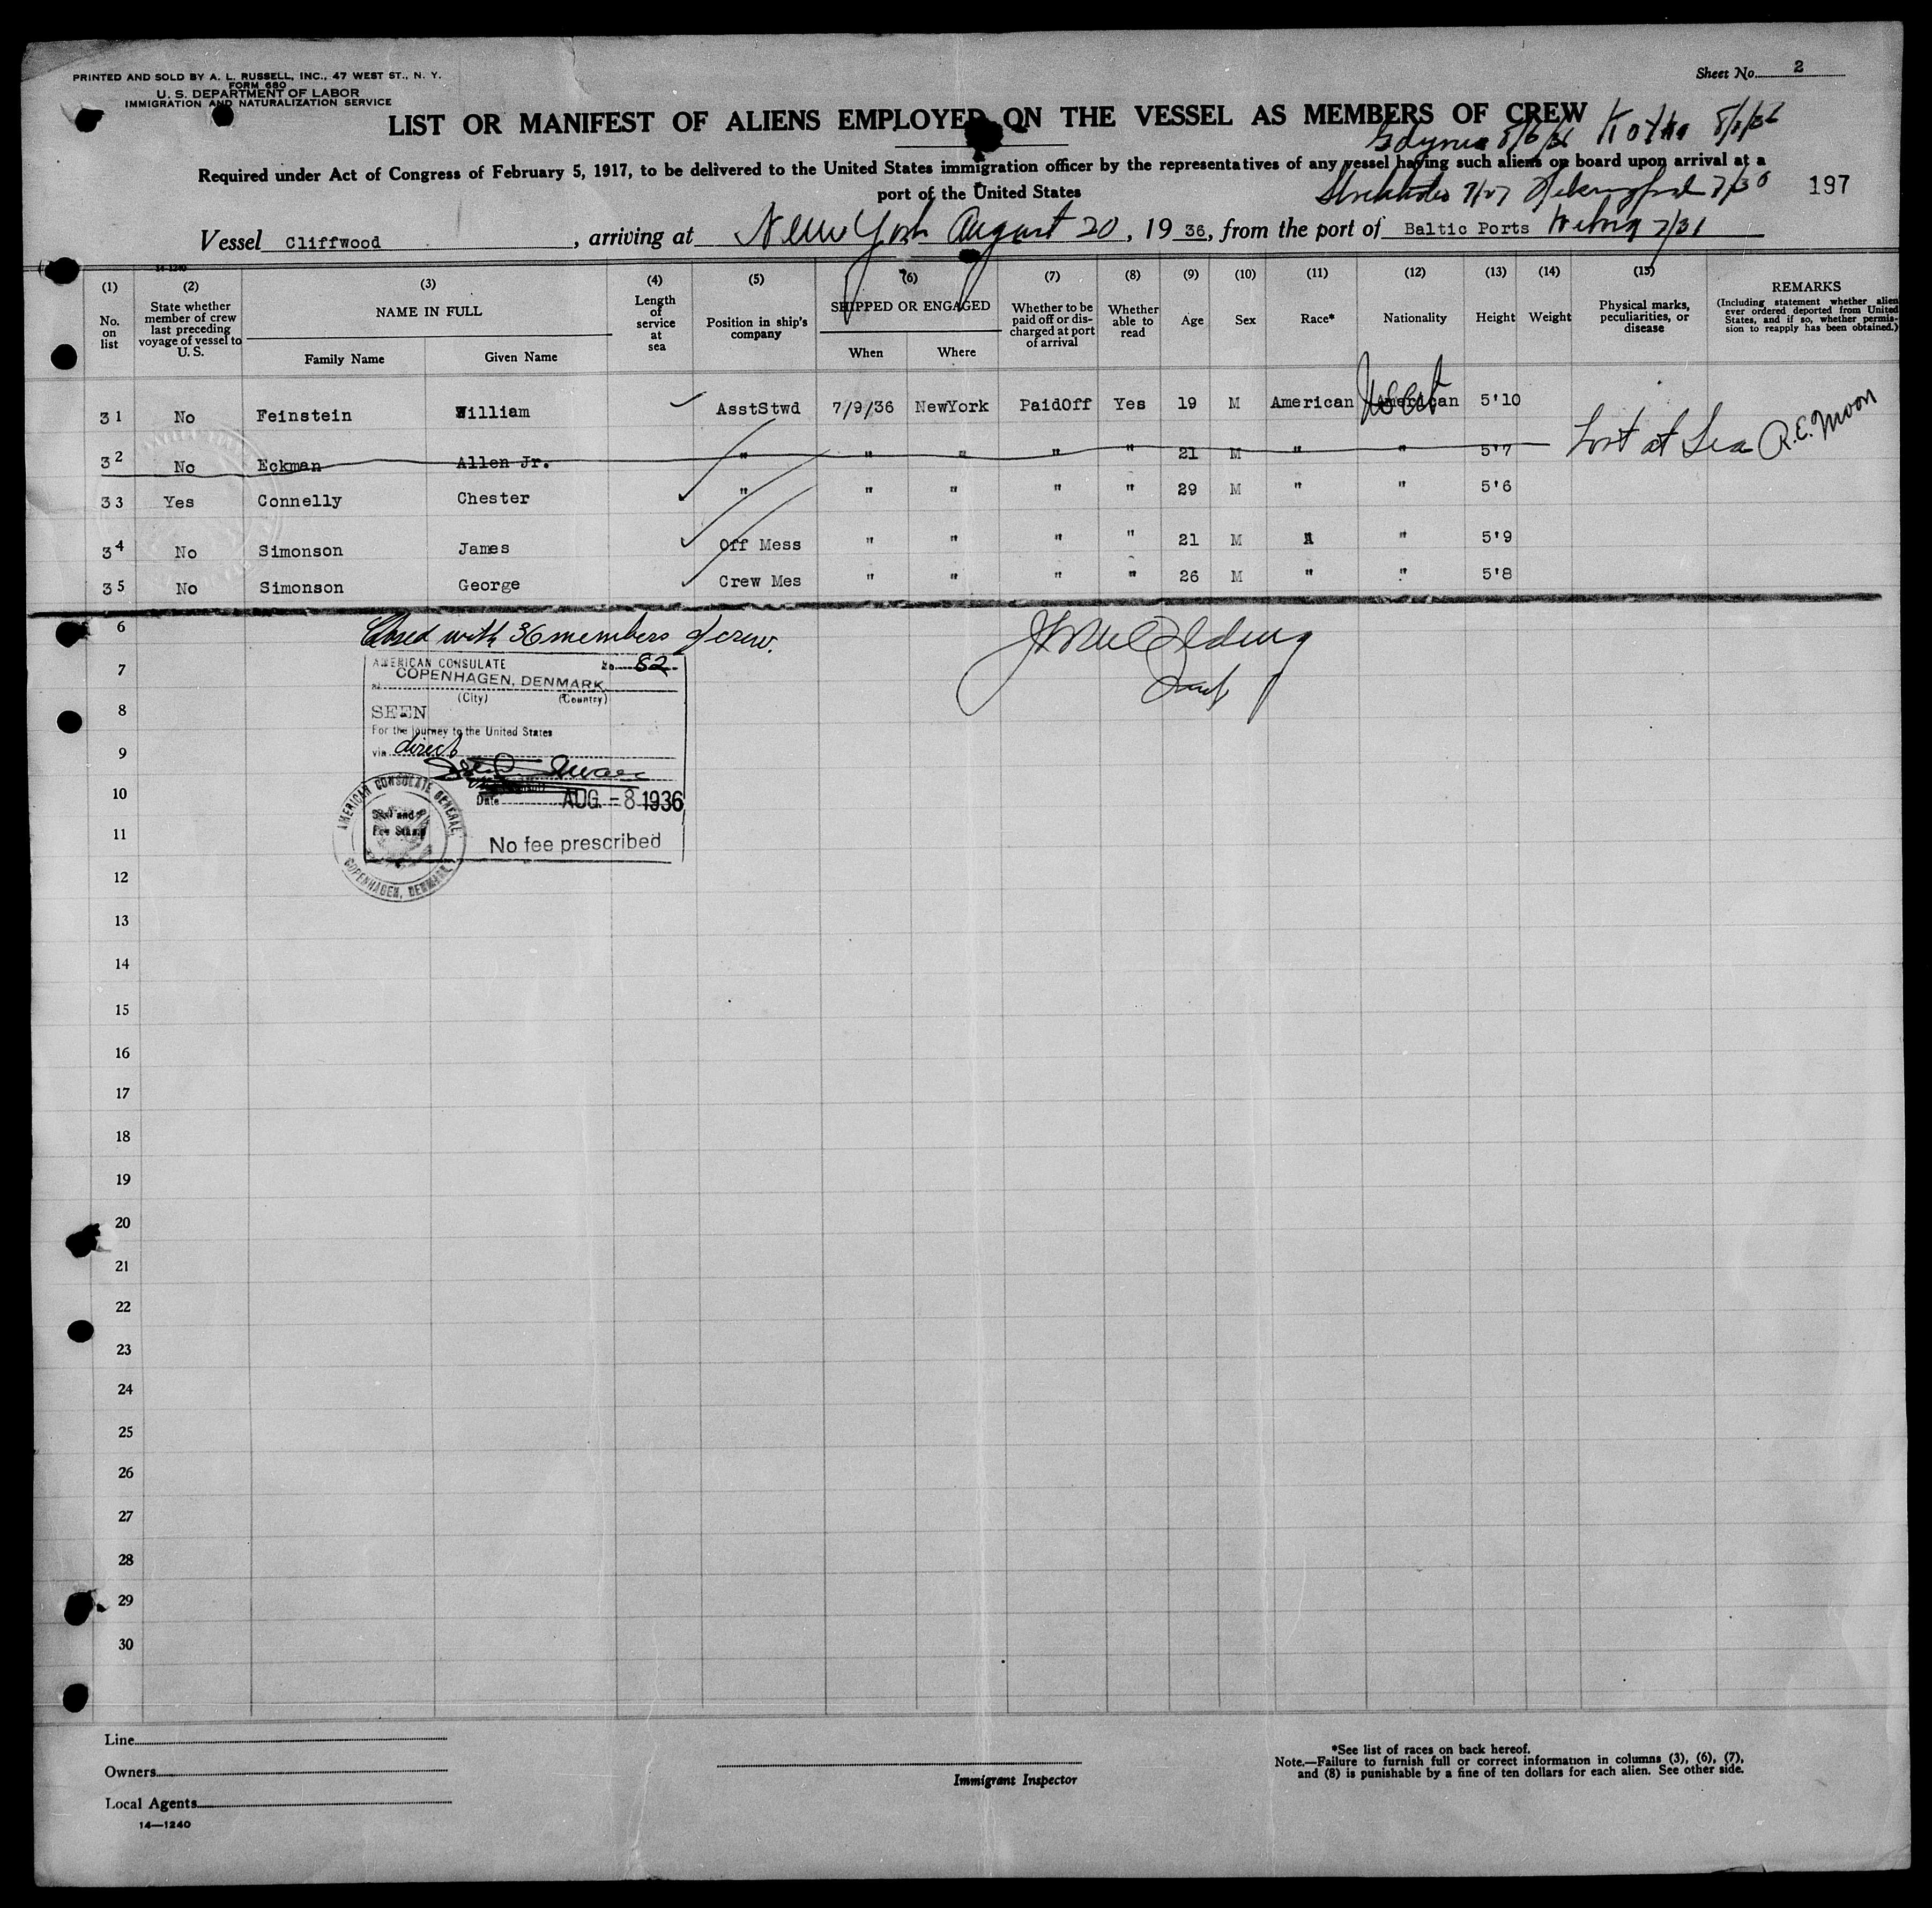 PRINTED AND SOLD BY A. L. RUSSELL, INC., 47 WEST ST., N. Y.
FORM 680
U. S. DEPARTMENT OF LABOR
IMMIGRATION AND NATURALIZATION SERVICE
Sheet No. 2
LIST OR MANIFEST OF ALIENS EMPLOYED ON THE VESSEL AS MEMBERS OF CREW
Gdynia 8/6/36 Kotka 8/1/36
Required under Act of Congress of February 5, 1917, to be delivered to the United States immigration officer by the representatives of any vessel having such aliens on board upon arrival at a
port of the United States
7/27 7/30 197
Vessel Cliffwood, arriving at New York August 20, 1936, from the port of Baltic Ports 7/31
14-1240
(1) (2) (3) (4) (5) (6) (7) (8) (9) (10) (11) (12) (13) (14) (15)
No. on list
State whether member of crew last preceding voyage of vessel to U. S.
NAME IN FULL
Family Name Given Name
Length of service at sea
Position in ship's company
SHIPPED OR ENGAGED
When Where
Whether to be paid off or discharged at port of arrival
Whether able to read
Age Sex Race* Nationality Height Weight
Physical marks, peculiarities, or disease
REMARKS
(Including statement whether alien ever ordered deported from United States, and if so, whether permission to reapply has been obtained.)
31 No Feinstein William AsstStwd 7/9/36 NewYork PaidOff Yes 19 M American American 5'10
32 No Eckman Allen Jr. " " " " " 21 M " " 5'7 Lost at Sea R.E. Moon
33 Yes Connelly Chester " " " " " 29 M " " 5'6
34 No Simonson James Off Mess " " " " 21 M " " 5'9
35 No Simonson George Crew Mes " " " " 26 M " " 5'8
6
Closed with 36 members of crew.
7
AMERICAN CONSULATE No. 82
at COPENHAGEN, DENMARK
(City) (Country)
8
SEEN
For the journey to the United States
9
via direct
10
Date AUG -8 1936
11
AMERICAN CONSULATE GENERAL, COPENHAGEN, DENMARK
Seal and Fee Stamp
No fee prescribed
12
13
14
15
16
17
18
19
20
21
22
23
24
25
26
27
28
29
30
Line
Owners
Local Agents
14—1240
Immigrant Inspector
*See list of races on back hereof.
Note.—Failure to furnish full or correct information in columns (3), (6), (7),
and (8) is punishable by a fine of ten dollars for each alien. See other side.